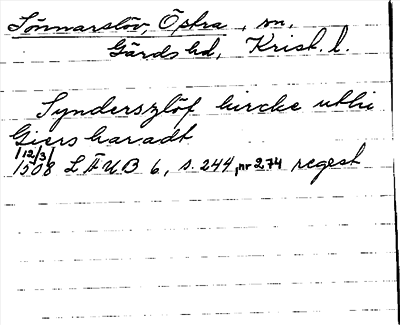 Sönnarslöv, Östra, sn,
Gärds hd, Krist. l.
Synderszlöf kircke uthi
Giers haradt
12/3
1508 LÄUB 6, s. 244, nr 274 regest